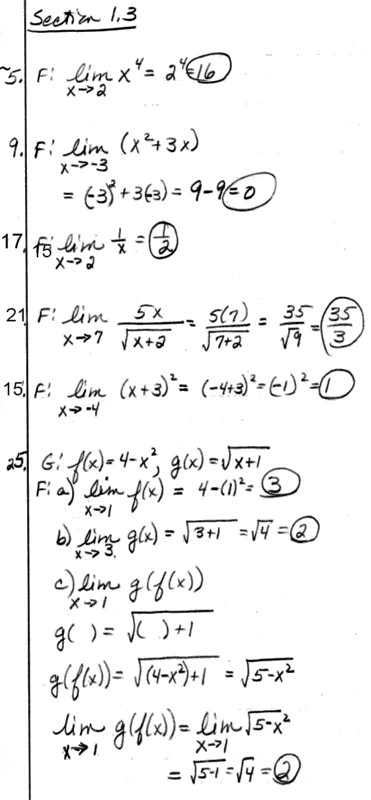 Section 1.3
~5. F: lim x→2 x⁴ = 2⁴ = 16
9. F: lim x→-3 (x²+3x)
= (-3)² + 3(-3) = 9-9 = 0
17. F: lim x→2 1/x = 1/2
21 F: lim x→7 5x/√(x+2) = 5(7)/√(7+2) = 35/√9 = 35/3
15. F: lim x→-4 (x+3)² = (-4+3)² = (-1)² = 1
25. G: f(x) = 4-x², g(x) = √(x+1)
F: a) lim x→1 f(x) = 4-(1)² = 3
b) lim x→3 g(x) = √(3+1) = √4 = 2
c) lim x→1 g(f(x))
g( ) = √(( )+1)
g(f(x)) = √((4-x²)+1) = √(5-x²)
lim x→1 g(f(x)) = lim x→1 √(5-x²)
= √(5-1) = √4 = 2